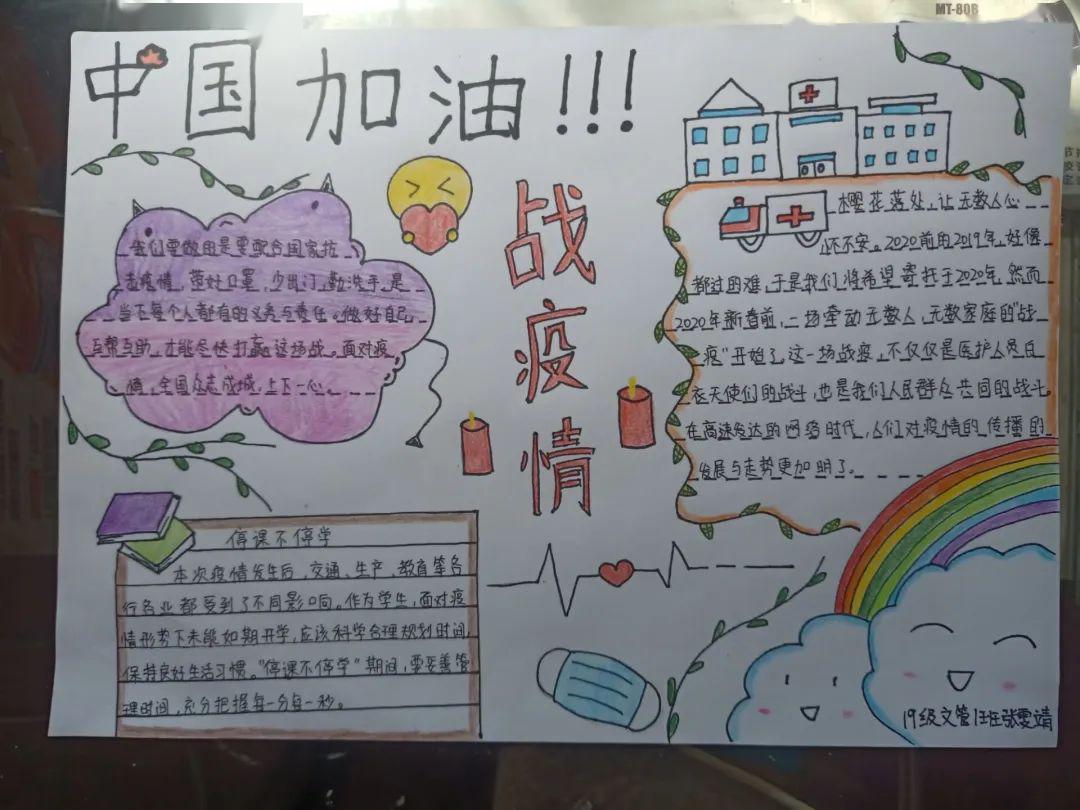 MT-80B
中国加油!!!
战疫情
我们要做的是要配合国家抗
击疫情,带好口罩,少出门,勤洗手,是
当下每个人都有的义务与责任。做好自己,
互帮互助,才能尽快打赢这场战。面对疫
情,全国众志成城,上下一心。
樱花落处,让无数人心
怀不安。2020前用2019年,好像
都过困难,于是我们将希望寄托于2020年,然而
2020年新春前,一场牵动无数人,无数家庭的"战
疫"开始了,这一场战疫,不仅仅是医护人员白
衣天使们的战斗,也是我们人民群众共同的战斗
在高速发达的网络时代,人们对疫情的传播的
发展与走势更加明了。
停课不停学
本次疫情发生后,交通、生产、教育等各
行各业都受到了不同影响。作为学生,面对疫
情形势下未能如期开学,应该科学合理规划时间,
保持良好生活习惯。"停课不停学"期间,要妥善管
理时间,充分把握每一分每一秒。
19级文管1班张雯靖